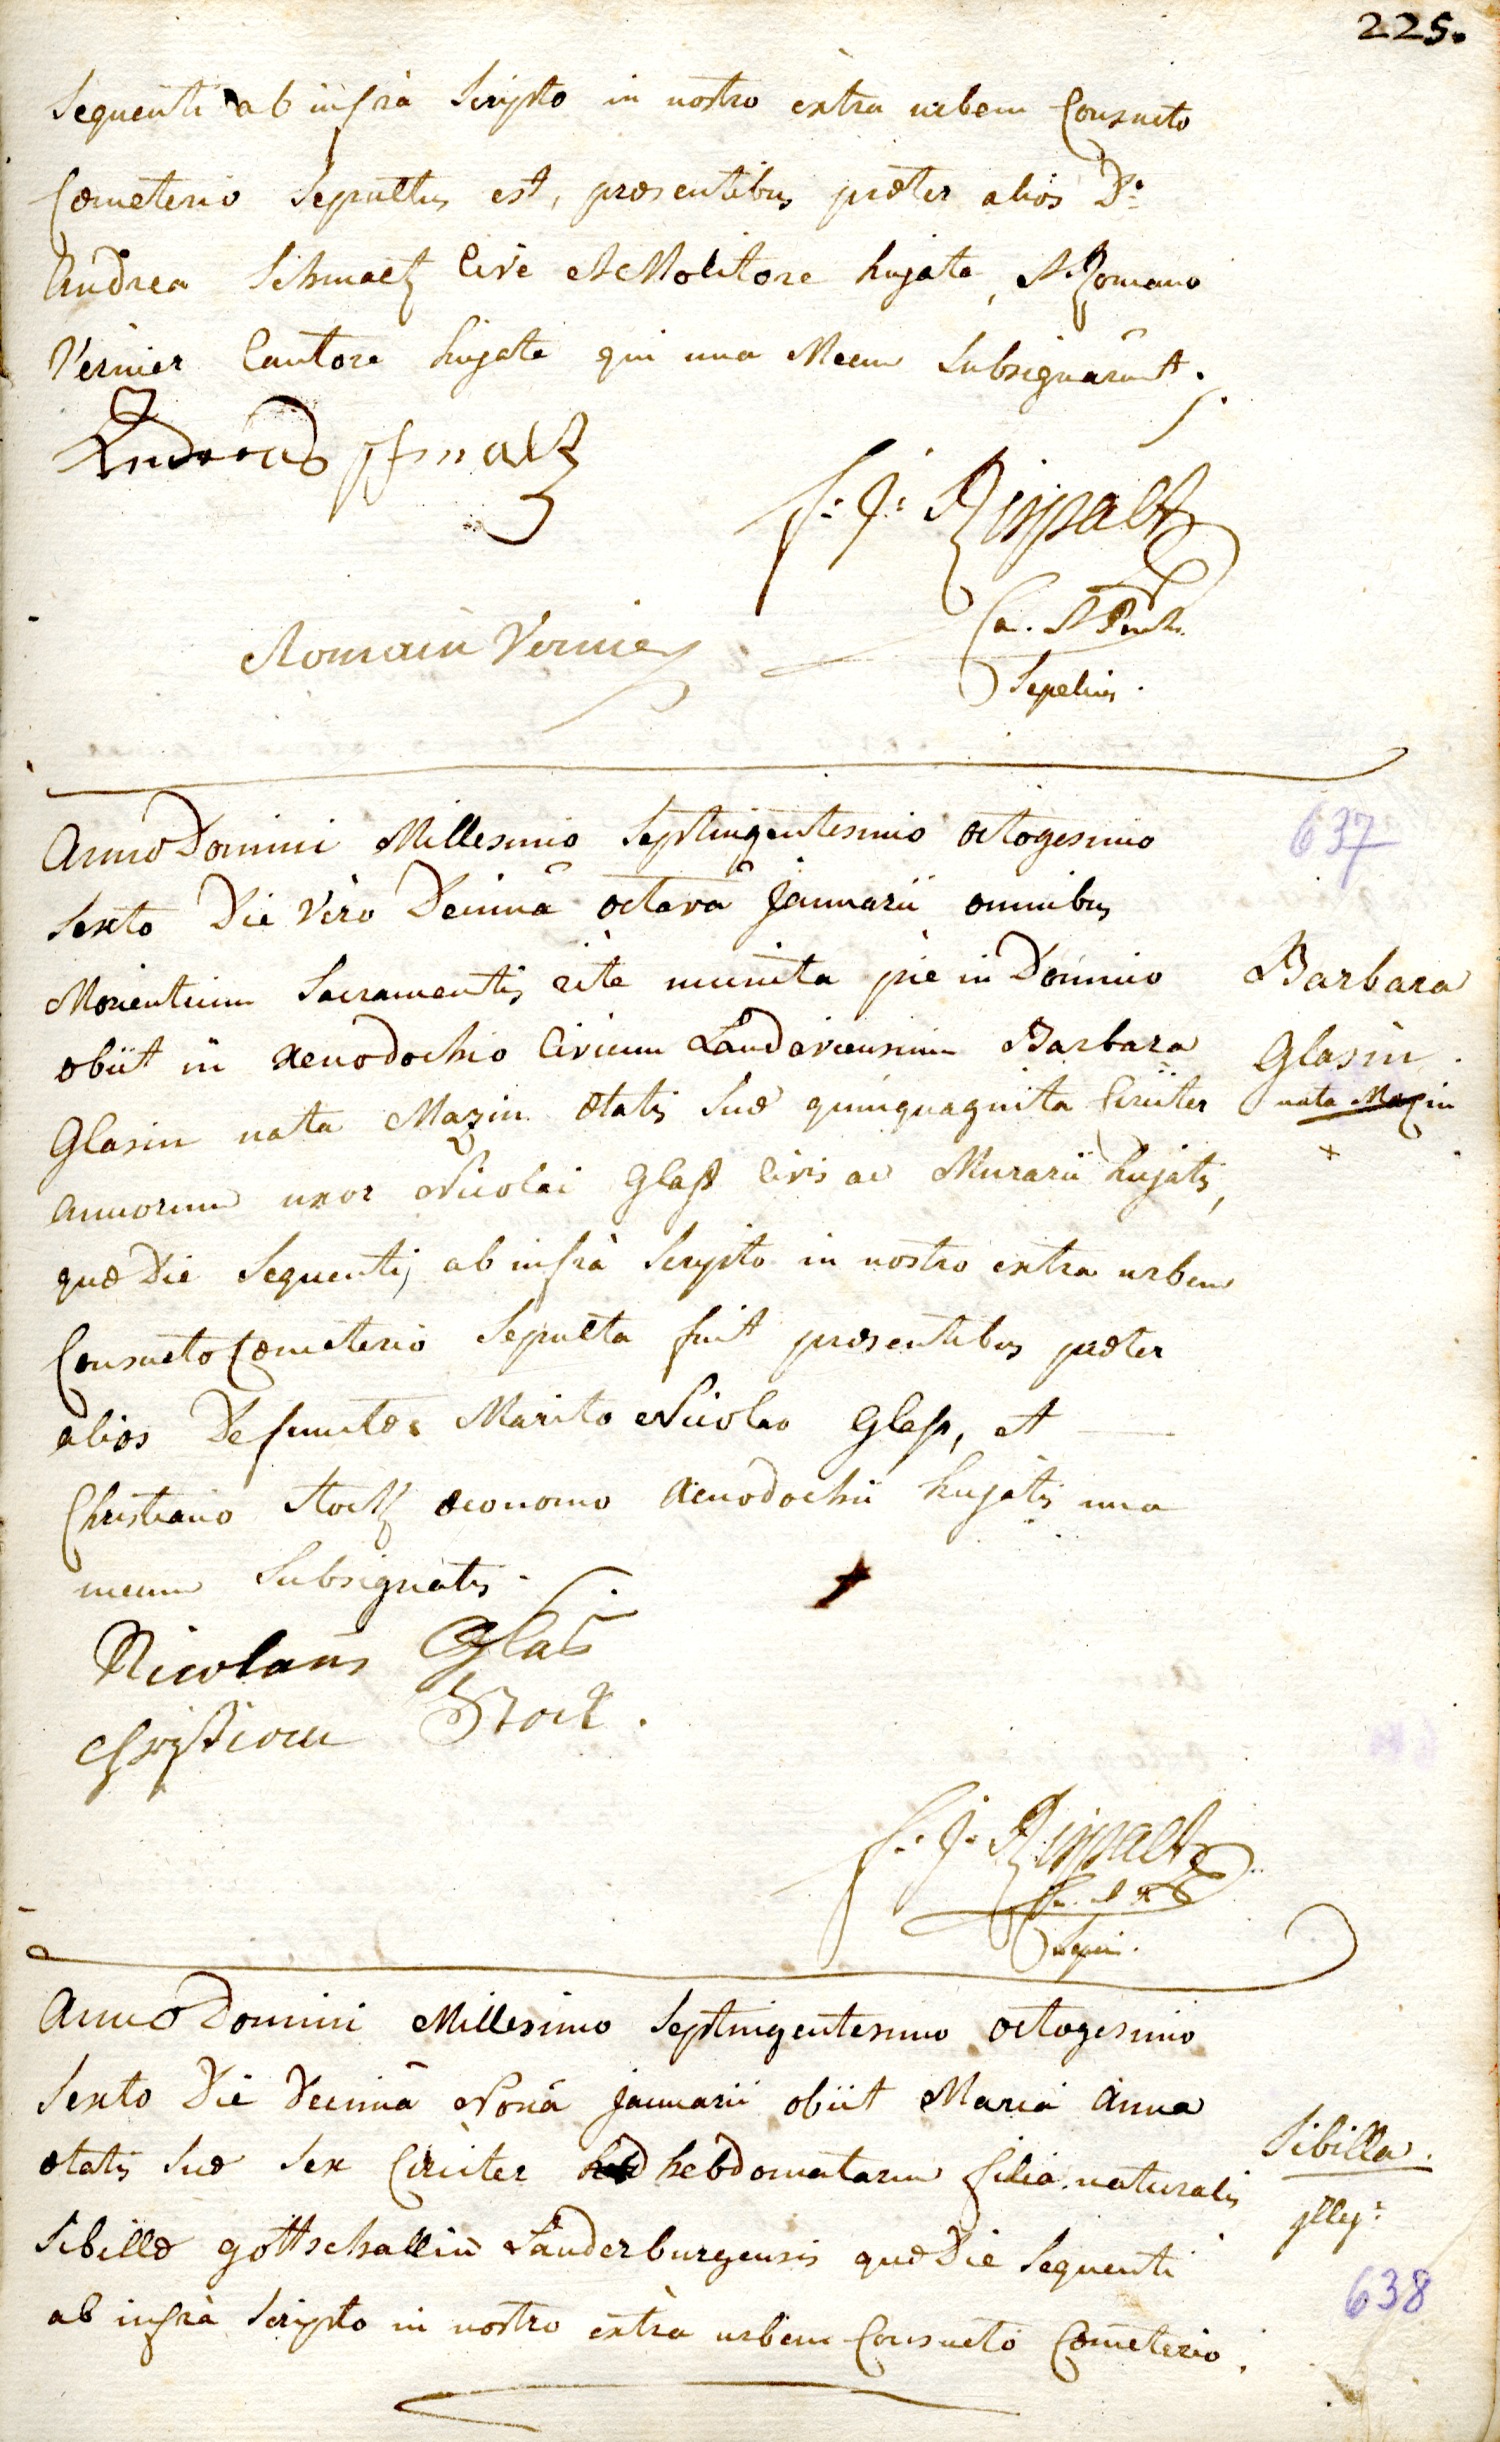 225.
Sequenti ab infrà Scripto in nostro extra urbem Consueto
Cæmeterio Sepultus est, præsentibus præter alios D:
Andrea Schmaltz Cive et Molitore hujate, et Romano
Vernier Cantore hujate qui una Mecum Subsignârunt.
Andreas schmaltz
f: J: Rippalt
Romain Vernier
Sepelivi.
Anno Domini Millesimo Septingentesimo octogesimo
637
Sexto Die Vero Decimâ octavâ Januarii omnibus
Morientium Sacramentis rite munita piè in Domino
Barbara
obiit in Xenodochio Civium Landaviensium Barbara
Glasin.
Glasin nata Mazin ætatis suæ quinquaginta Circiter
nata Mazin
+
annorum uxor Nicolai Glaß Civis ac Murarii hujatis,
quæ Die Sequenti, ab infrà Scripto in nostro extra urbem
Consueto Cæmeterio Sepulta fuit præsentibus præter
alios Defunctæ Marito Nicolao Glaß, et
Christiano Stock œconomo Xenodochii hujatis una
mecum Subsignatis.
Nicolaus Glas
christian Stock.
f: J: Rippalt
Anno Domini Millesimo Septingentesimo octogesimo
Sexto Die Decimâ Nonâ Januarii obiit Maria Anna
ætatis suæ Sex Circiter hebdomatarum filia naturalis
Sibilla.
Sibillæ gottschallin Lauderburgensis quæ Die Sequenti
jlleg:
638
ab infrà Scripto in nostro extrà urbem Consueto Cœmeterio.